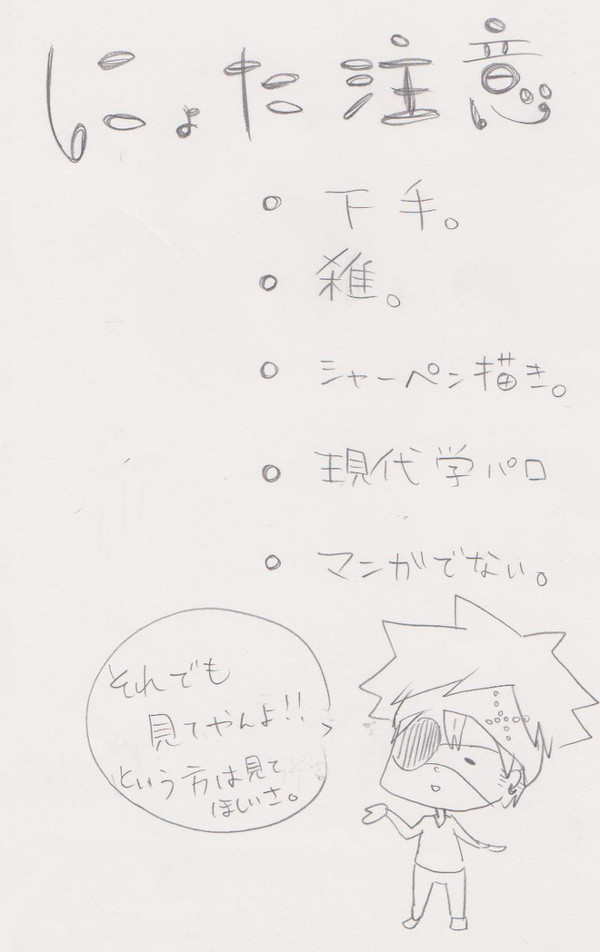 にょた注意
下手。
雑。
シャーペン描き。
現代学パロ
マンガでない。
それでも
見てやんよ!!
という方は見て
ほしいさ。